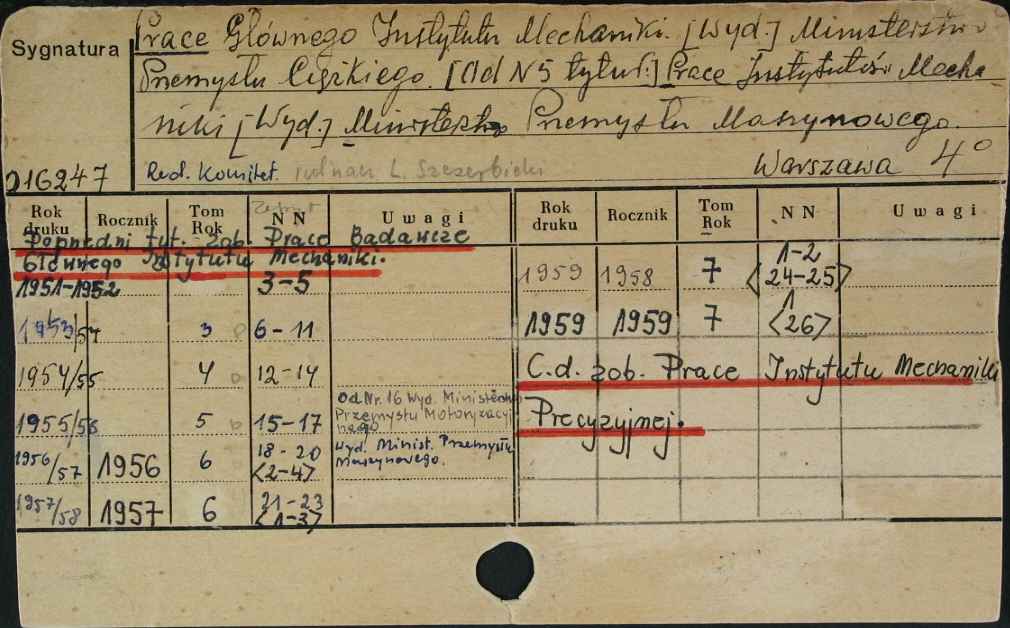 Sygnatura
Prace Głównego Instytutu Mechaniki. [Wyd.] Ministerstwo
Przemysłu Ciężkiego. [Od N 5 tytuł:] Prace Instytutów Mecha
niki [Wyd.] Ministerstwo Przemysłu Maszynowego.
Warszawa 4°
016247 Red. Komitet. L. Szczerbicki
Rok druku Rocznik Tom Rok Zeszyt N N Uwagi
Poprzedni tyt. zob. Prace Badawcze
Głównego Instytutu Mechaniki.
1951-1952 3-5
1953/54 3 6-11
1954/55 4 12-14
1955/56 5 15-17 Od Nr. 16 Wyd. Ministerstwo
Przemysłu Motoryzacyj
nego
1956/57 1956 6 18-20 <2-4> Wyd. Minist. Przemysłu
Maszynowego.
1957/58 1957 6 21-23 <1-3>
Rok druku Rocznik Tom Rok N N Uwagi
1959 1958 7 1-2 <24-25>
1959 1959 7 1 <26>
C.d. zob. Prace Instytutu Mechaniki
Precyzyjnej.